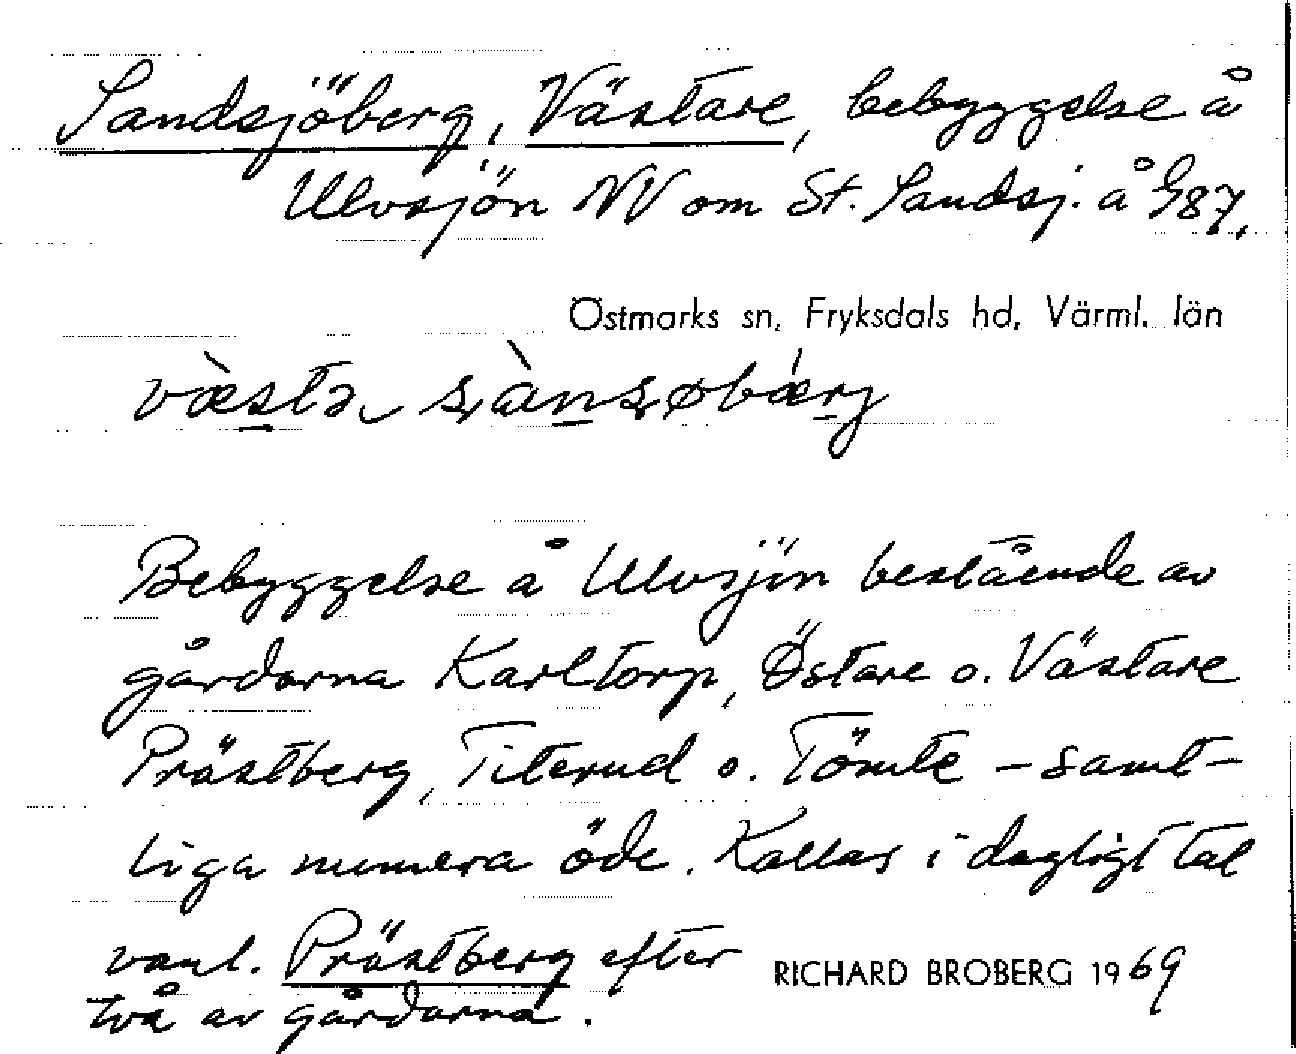 Sandsjöberg, Västare, bebyggelse å
Ulvsjön NV om St. Sandsj. å G87,
Östmarks sn, Fryksdals hd, Värml. län
Bebyggelse å Ulvsjön bestående av
gårdarna Karltorp, Östare o. Västare
Prästberg, Titerud o. Tömte – samt-
liga numera öde. Kallas i dagligt tal
vanl. Prästberg efter
två av gårdarna.
RICHARD BROBERG 1969